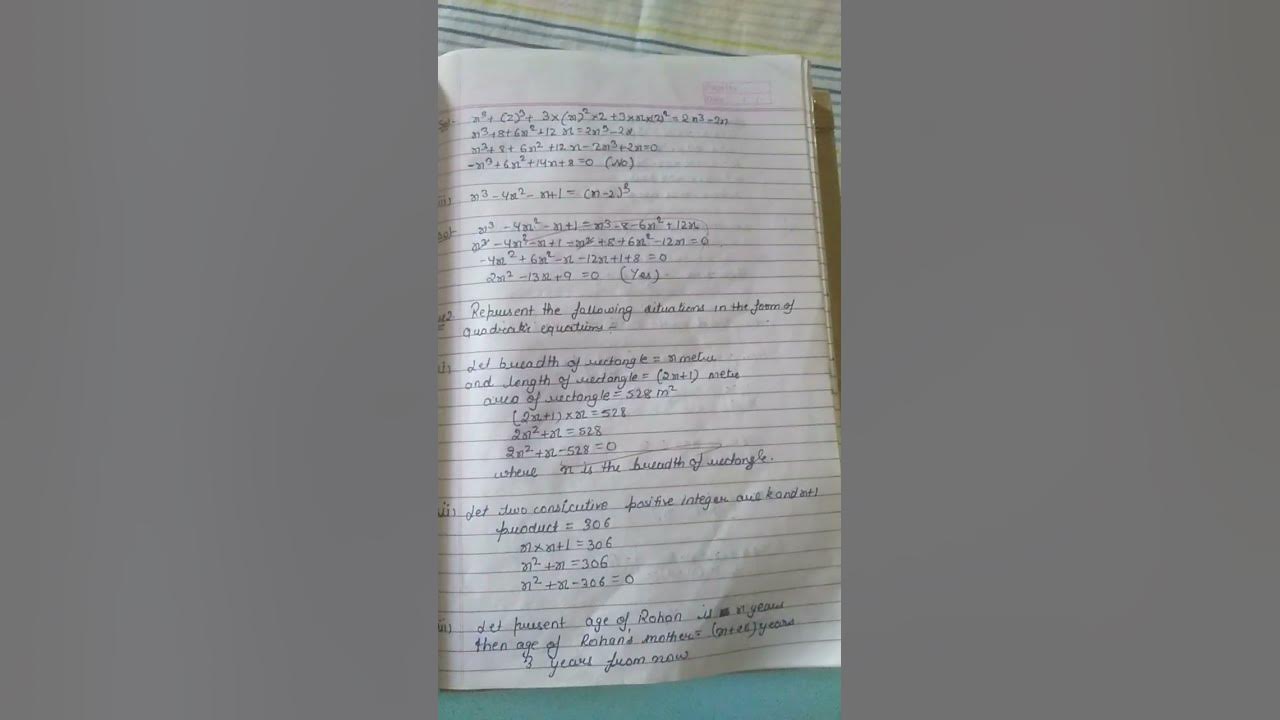 Sol- x³ + (2)³ + 3×(x)²×2 + 3×x×(2)² = 2x³-2x
x³+8+6x²+12x = 2x³-2x
x³+8+6x²+12x-2x³+2x=0
-x³+6x²+14x+8=0 (No)
x³-4x²-x+1 = (x-2)³
Sol- x³-4x²-x+1 = x³-8-6x²+12x
x³-4x²-x+1-x³+8+6x²-12x=0
-4x²+6x²-x-12x+1+8=0
2x²-13x+9=0 (Yes)
Represent the following situations in the form of
quadratic equations :-
Let breadth of rectangle = x metre
and length of rectangle = (2x+1) metre
area of rectangle = 528 m²
(2x+1)×x=528
2x²+x=528
2x²+x-528=0
where x is the breadth of rectangle.
ii) Let two consicutive positive integer are x and x+1
product = 306
x×x+1=306
x²+x=306
x²+x-306=0
iii) Let present age of Rohan is x years
then age of Rohan's mother = (x+26) years
3 years from now